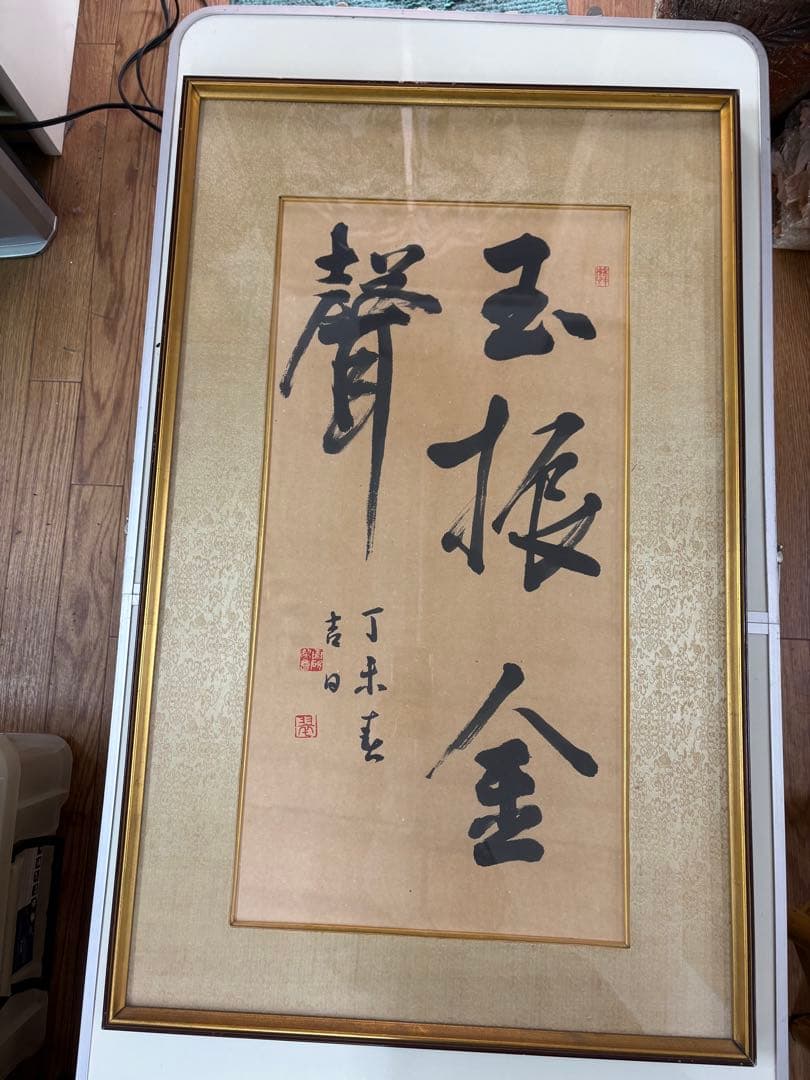 玉振金
聲
丁未春
吉日